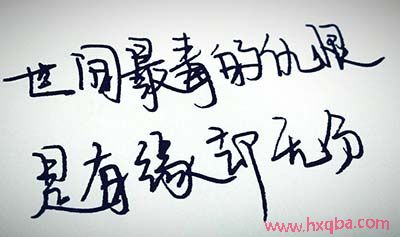 世间最毒的仇恨
是有缘却无分
www.hxqba.com